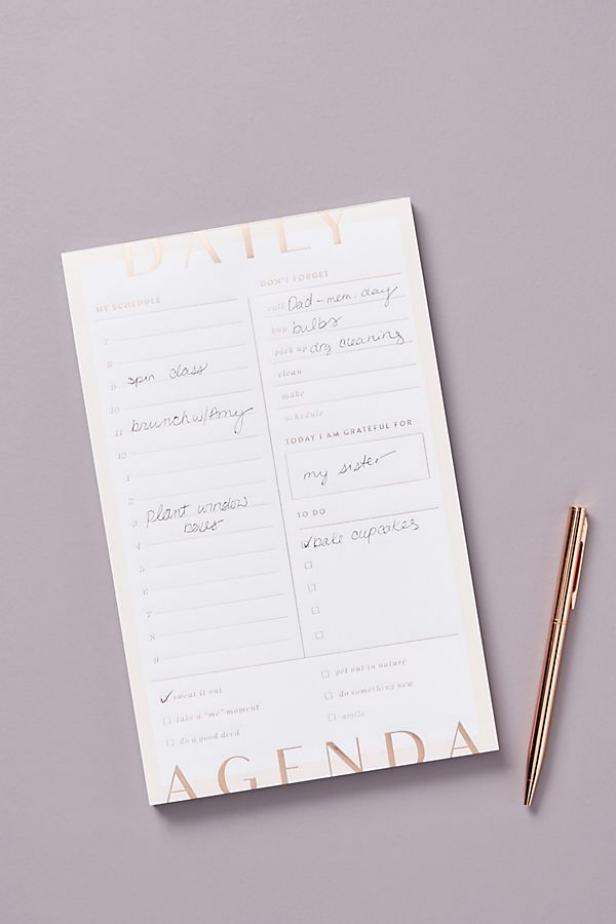 DAILY
MY SCHEDULE
7
8
9 spin class
10
11 brunch w/Amy
12
1
2
3 plant window
boxes
4
5
6
7
8
9
DON'T FORGET
call Dad - mem. day
buy bulbs
pick up dry cleaning
clean
make
schedule
TODAY I AM GRATEFUL FOR
my sister
TO DO
bake cupcakes
sweat it out
take a "me" moment
do a good deed
get out in nature
do something new
smile
AGENDA